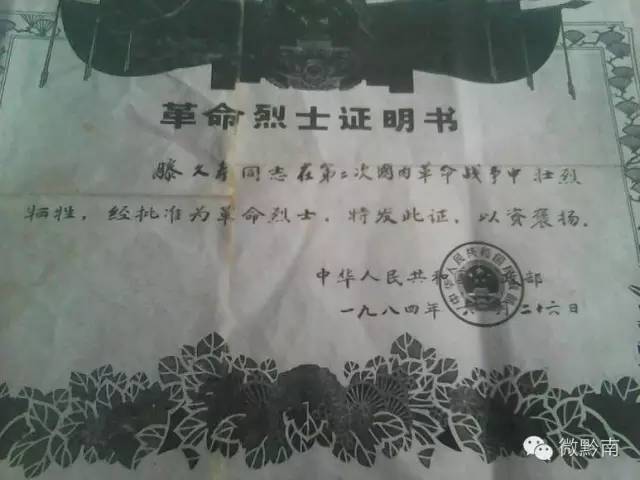 革命烈士证明书
滕久寿同志在第二次国内革命战争中壮烈
牺牲，经批准为革命烈士，特发此证，以资褒扬。
中华人民共和 部
一九八四年 二十六日
微黔南